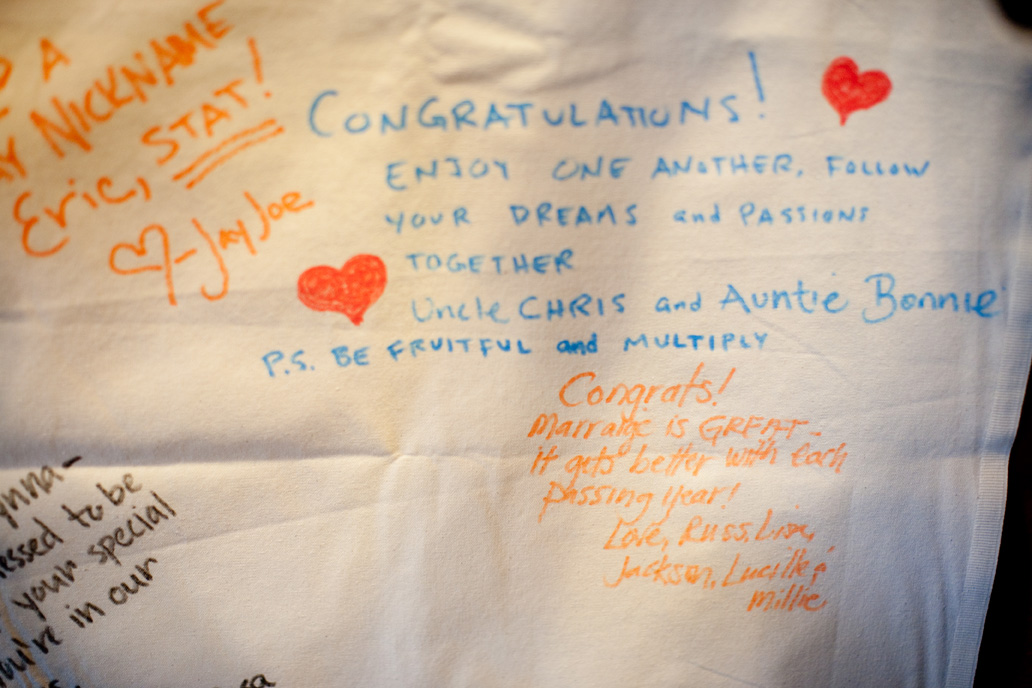 A
NICKNAME
Eric, STAT!
-JayJoe
CONGRATULATIONS!
ENJOY ONE ANOTHER, FOLLOW
YOUR DREAMS and PASSIONS
TOGETHER
Uncle CHRIS and Auntie Bonnie
P.S. BE FRUITFUL and MULTIPLY
Congrats!
Marraige is GREAT-
it gets better with each
passing year!
Love, Russ, Lisa,
Jackson, Lucille &
Millie
to be
your special
in our